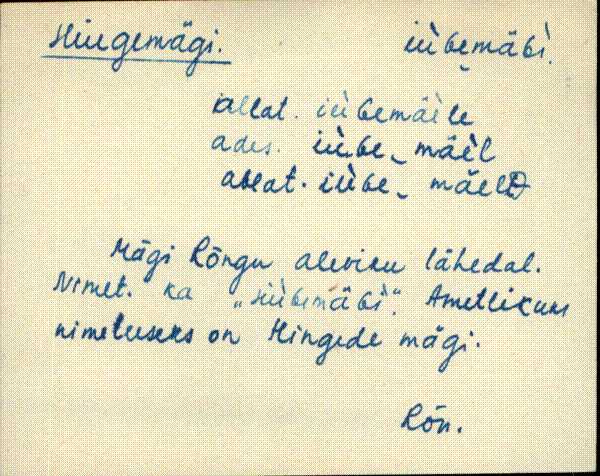 Hingemägi. iùbemäbì.
allat. iùbemäèle
ades. iùbe mäèl
ablat. iùbe mäelD
Mägi Rõngu aleviku lähedal.
Nimet. ka „Hiùbemäbì”. Ametlikuks
nimetuseks on Hingede mägi.
Rõn.